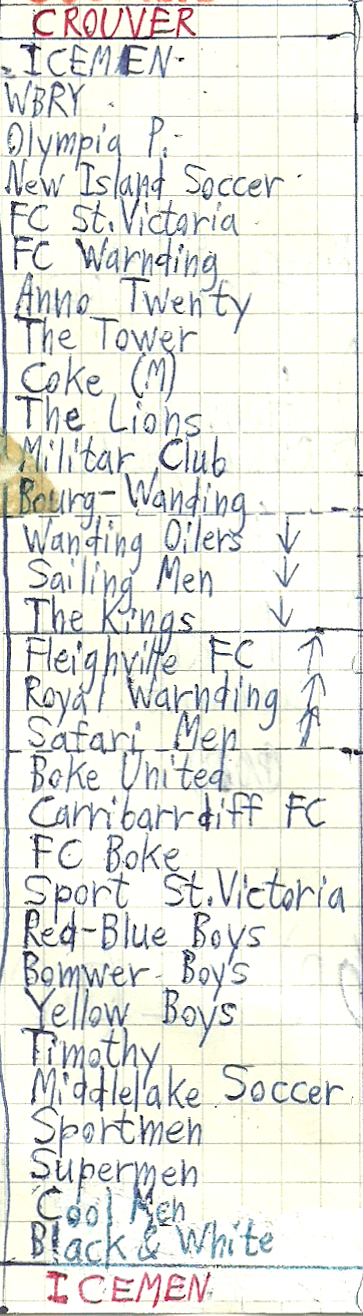 CROUVER
ICEMEN
WBRY
Olympia P.
New Island Soccer
FC St.Victoria
FC Warnding
Anno Twenty
The Tower
Coke (M)
The Lions
Militar Club
Bourg-Wanding
Wanding Oilers ↓
Sailing Men ↓
The Kings ↓
Fleighville FC ↑
Royal Warnding ↑
Safari Men ↑
Boke United
Carribarrdiff FC
FC Boke
Sport St.Victoria
Red-Blue Boys
Bomwer Boys
Yellow Boys
Timothy
Middlelake Soccer
Sportmen
Supermen
Cool Men
Black & White
ICEMEN